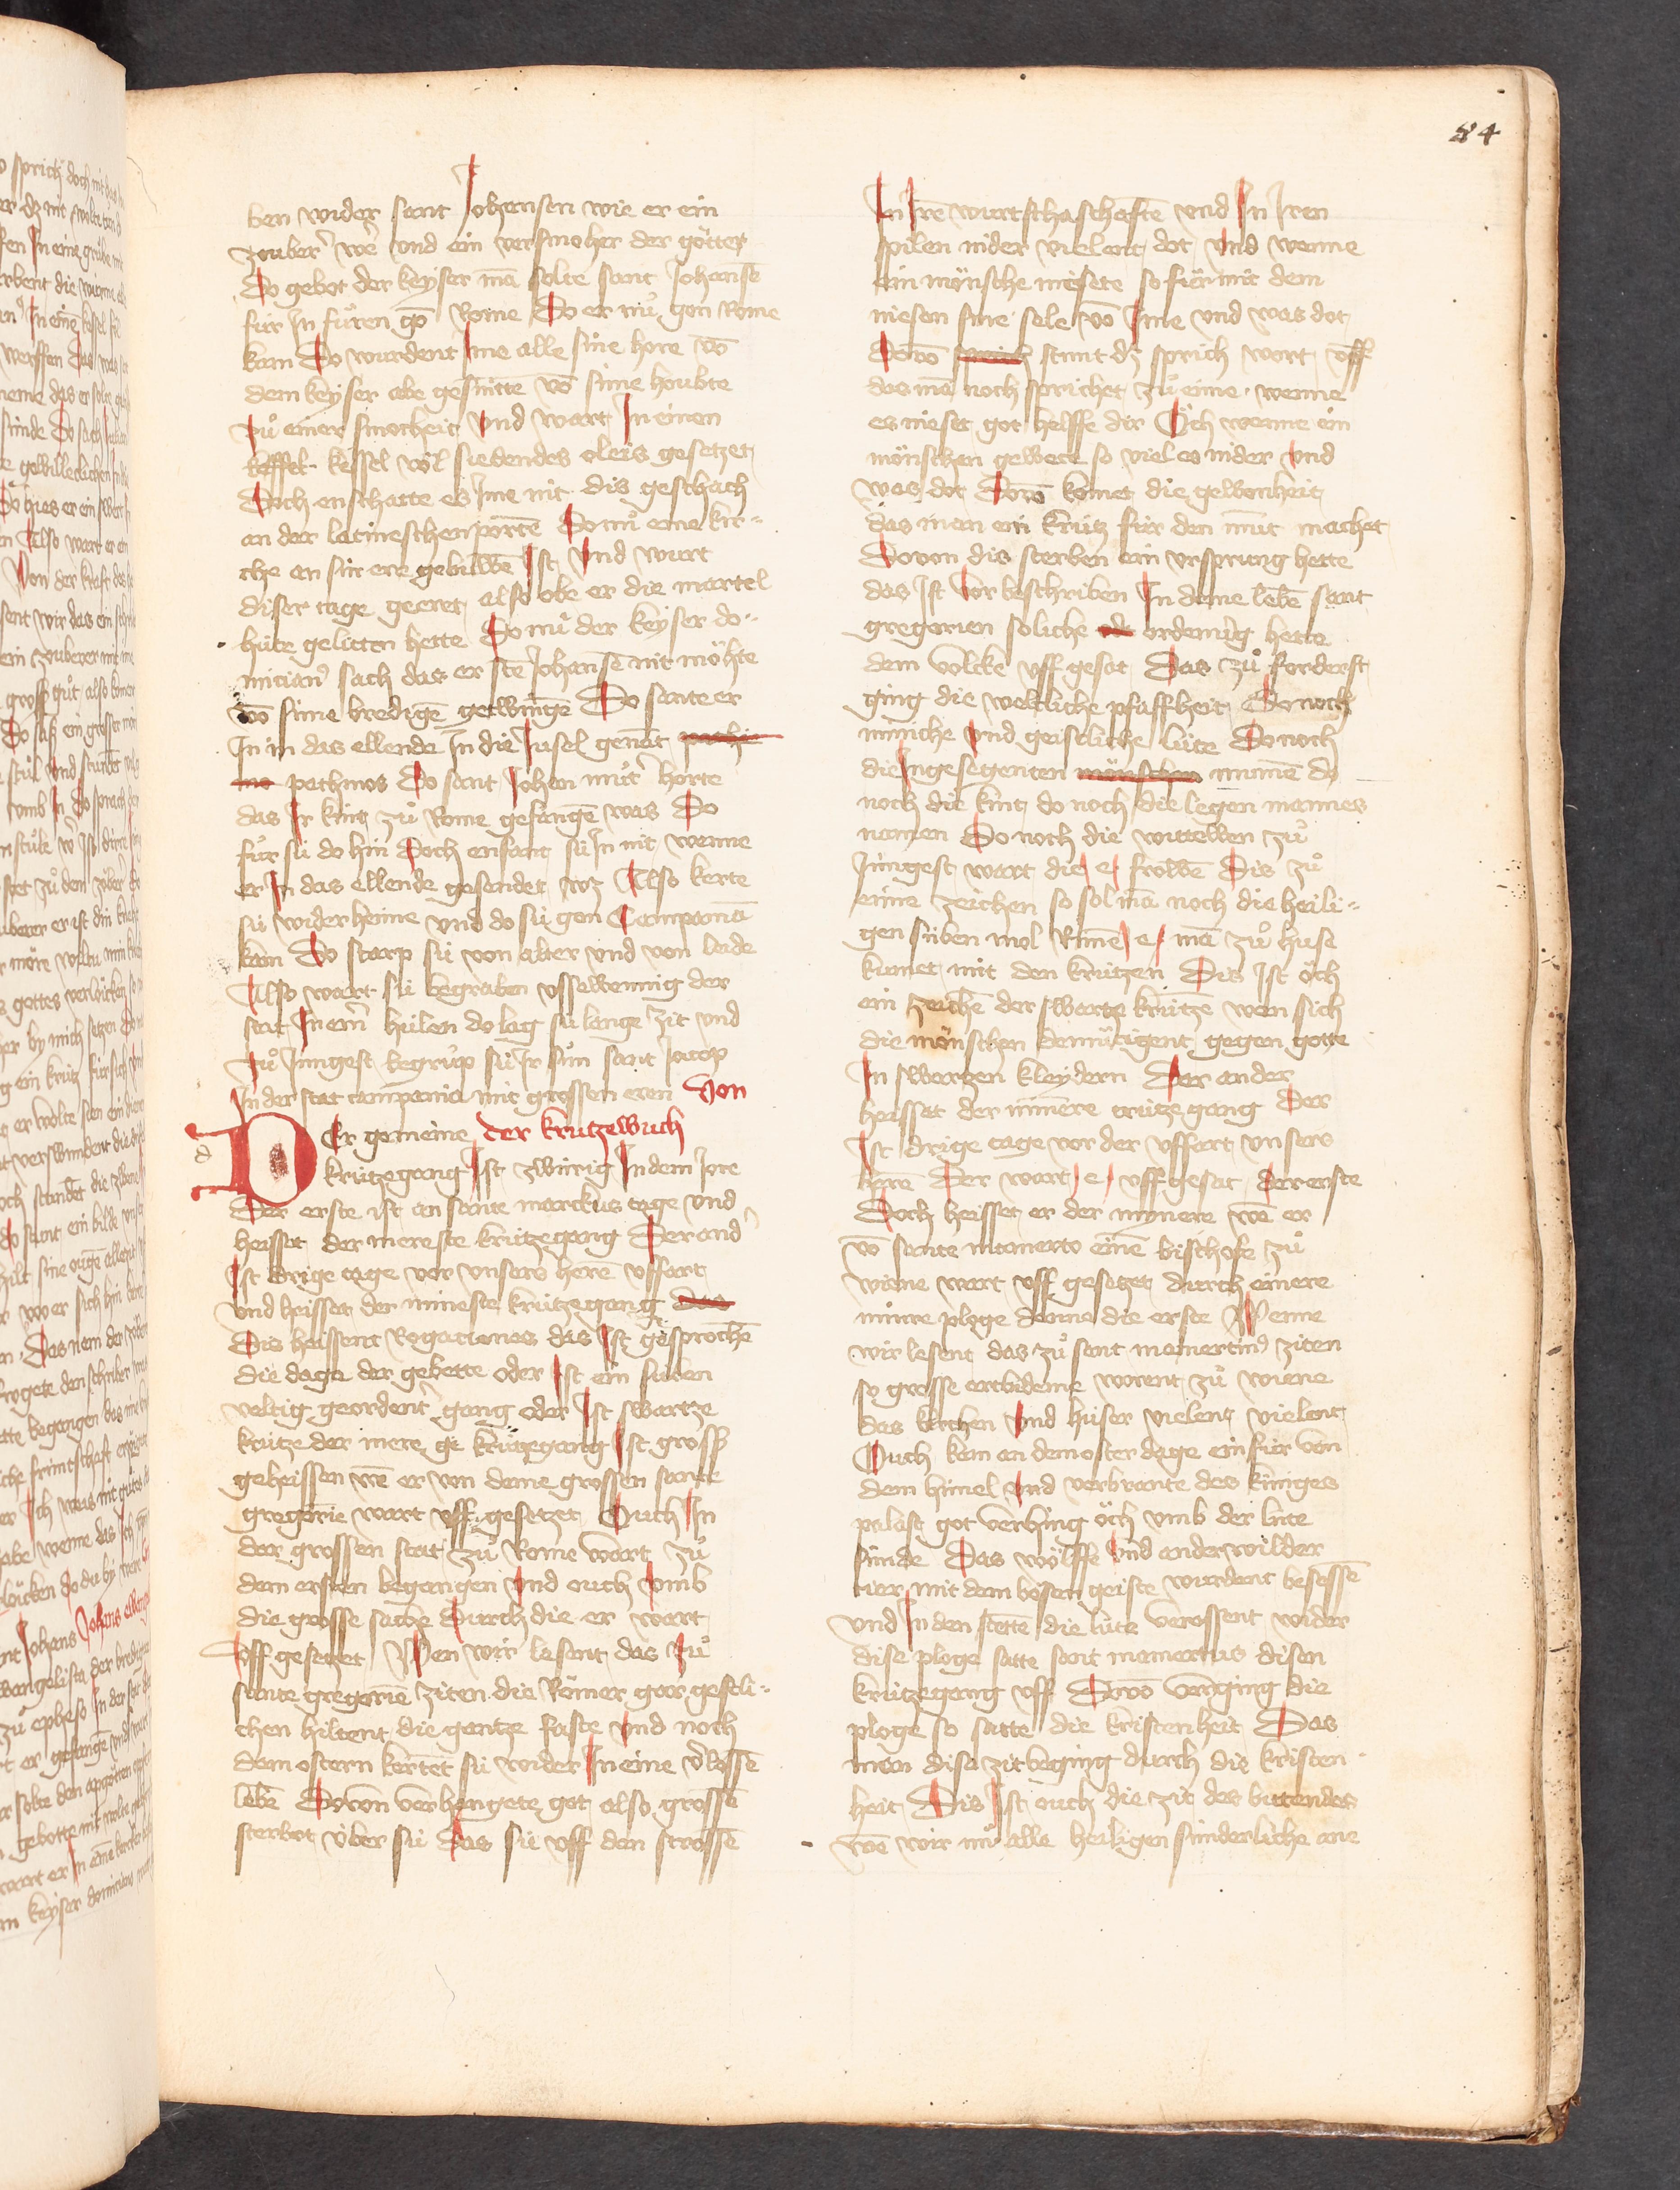 84
ben wider sant Johansen wie er ein
zouber̾ we᷑ vnd ein versmoher der götter
Do gebot der keyser mā solte sant Johansē
für In füren gō Rome Do er nuͦ gon Rome
kam Do wurdent Ime alle sine hore vō
dem keyser abe gesnittē vō sime houbte
Zuͦ einer smocheit vnd wart In einen
keffel kessel vol siedendes oleis gesetzet
Doch enschatte es Ime nit dis geschach
an der latineschen portē Do nuͦ eine kir-
che an sin ere gebuwē Ist vnd wurt
diser tage geeret also obe er die martel
hüte gelitten hette Do nuͦ der keyser do-
mician᷒ sach das er stē Johansē nit möhte
vō sime bredigē getwingē Do sante er
In in das ellende In die Insel genāt
pathmos Do sant Johan muͦt᷑ horte
das Ir kint zuͦ Rome gefangē was Do
fuͦr sü do hin Doch enfant sü In nit wenne
er In das ellende gesendet wz Also kerte
sü wider heime vnd do sü gon Campaniā
kam Do starp sü von alter vnd von leide
Also wart sü begraben vssewennig der
stat In ein᷑ hülen do lag sü lange zit vnd
Zuͦ Jungest begruͦp sü Ir suͦn sant Jacop
In der stat campania mit grossen eren Von
DEr gemeine der krutzewuch
krützegang Ist zwürig In dem Jore
Der erste ist an sante marckus tage vnd
heisset der mereste krützegang Der and᷑
Ist drige tage vor vnsers herē vffart
vnd heisset der mineste krützegang das
Dis heissent Rogaciones das Ist gesprochē
die dage der gebette oder Ist ein süben
valtig geordent᷑ gang oder Ist swartze
krütze der mere ge krützegang Ist gross
geheissen wē er von deme grossen sante
gregorie wart vff gesetzet Ouch In
der grossen stat zuͦ Rome wart zuͦ
dem ersten begangen vnd ouch vmb
die grosse sache durch die er wart
vff gesetzet Wen wir lesent das zuͦ
sante gregoriē ziten die Römer gar geistli-
chen hiltent die gantze faste vnd noch
dem ostern kertēt sü wider In eine v᷑lossē
lebē Dovon verhengete got also grossē
sterbet über sü das sü vff den strossē
In Irē wurtschaschaftē vnd In Iren
spilen nider vielent dot vnd wenne
ein mönsche niesete so fuͦr mit dem
niesen sine sele vō Ime vnd was dot
Dovō sprich stunt dz sprich wort vff
das mā noch sprichet zuͦ eime wenne
es nieset got helffe dir Och wenne ein
mönschen gewete so viel es nider vnd
was dot Dovō komet die gewonheit
das man ein krütz für den munt machet
Dovon dis sterben ein vrsprung hette
das Ist vor beschriben In deme lebē sant
gregorien soliche ordenūg hette
dem volcke vff gesat Das zuͦ forderst
ging die weltliche pfaffheit Do noch
müniche vnd geistliche lüte Do noch
die Ingesegenten mönschen nunnē do
noch die kint do noch die legen mannes
namen Do noch die wittewen zuͦ
Jungest wart die e frowē Dis zuͦ
eime zeichen so sol mā noch die heili-
gen süben mol Rümē e mā zuͦ huse
kumet mit den krützen Dis Ist och
ein zeichē der swartzē krützē wen sich
die mönschen demütigent gegen gotte
In swarzen kleydern Der ander
heisset der minere crütze gang Der
Ist drige tage vor der vffart vnsers
herē Der wart e vff gesat der erste
Doch heisset er der mynere wē er
vō sante mamerto einē bischofe zuͦ
wiene wart vff gesetzet durch einere
minre ploge denne die erste Wenne
wir lesent das zuͦ sant mamertin᷒ ziten
so grosse ertbideme worent zuͦ wiene
das kirchen vnd hüser vielent vielent
Ouch kam an dem oster dage ein für von
dem himel vnd verbrante des küniges
palast got verhing och vmb der lüte
sünde Das wölffe vnd ander wilder
tier mit dem bösen geiste wurdent besessē
vnd In den stettē die lüte verossent wider
dise ploge satte sant mamertus disen
krützegang vff Dovō verging die
ploge so satte die kristenheit Das
man dise zit beging durch die kristen-
heit Dis Ist ouch die zit des bittendes
wē wir nuͦ alle heiligen sünderliche ane